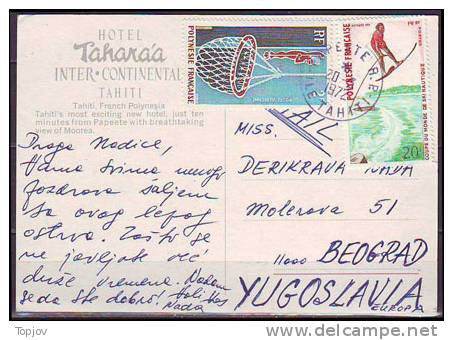 HOTEL
Tahara'a
INTER·CONTINENTAL
TAHITI
Tahiti, French Polynesia
Tahiti's most exciting new hotel, just ten
minutes from Papeete with breathtaking
view of Moorea.
Draga Nadice,
Vama svima mnogo
pozdrava šaljem
sa ovog lepog
ostrva. Zašto se
ne javljate već
duže vremena. Nadam
se da ste dobro! Voli Vas
Nada
POLYNESIE FRANÇAISE
RF
POLYNESIE FRANÇAISE
COUPE DU MONDE DE SKI NAUTIQUE
20F
PAPEETE R.P.
20
1972
ILE TAHITI
MISS.
DERIKRAVA NADA
Molerova 51
11000 BEOGRAD
YUGOSLAVIA
EUROPA
Topjov
delcampe.net